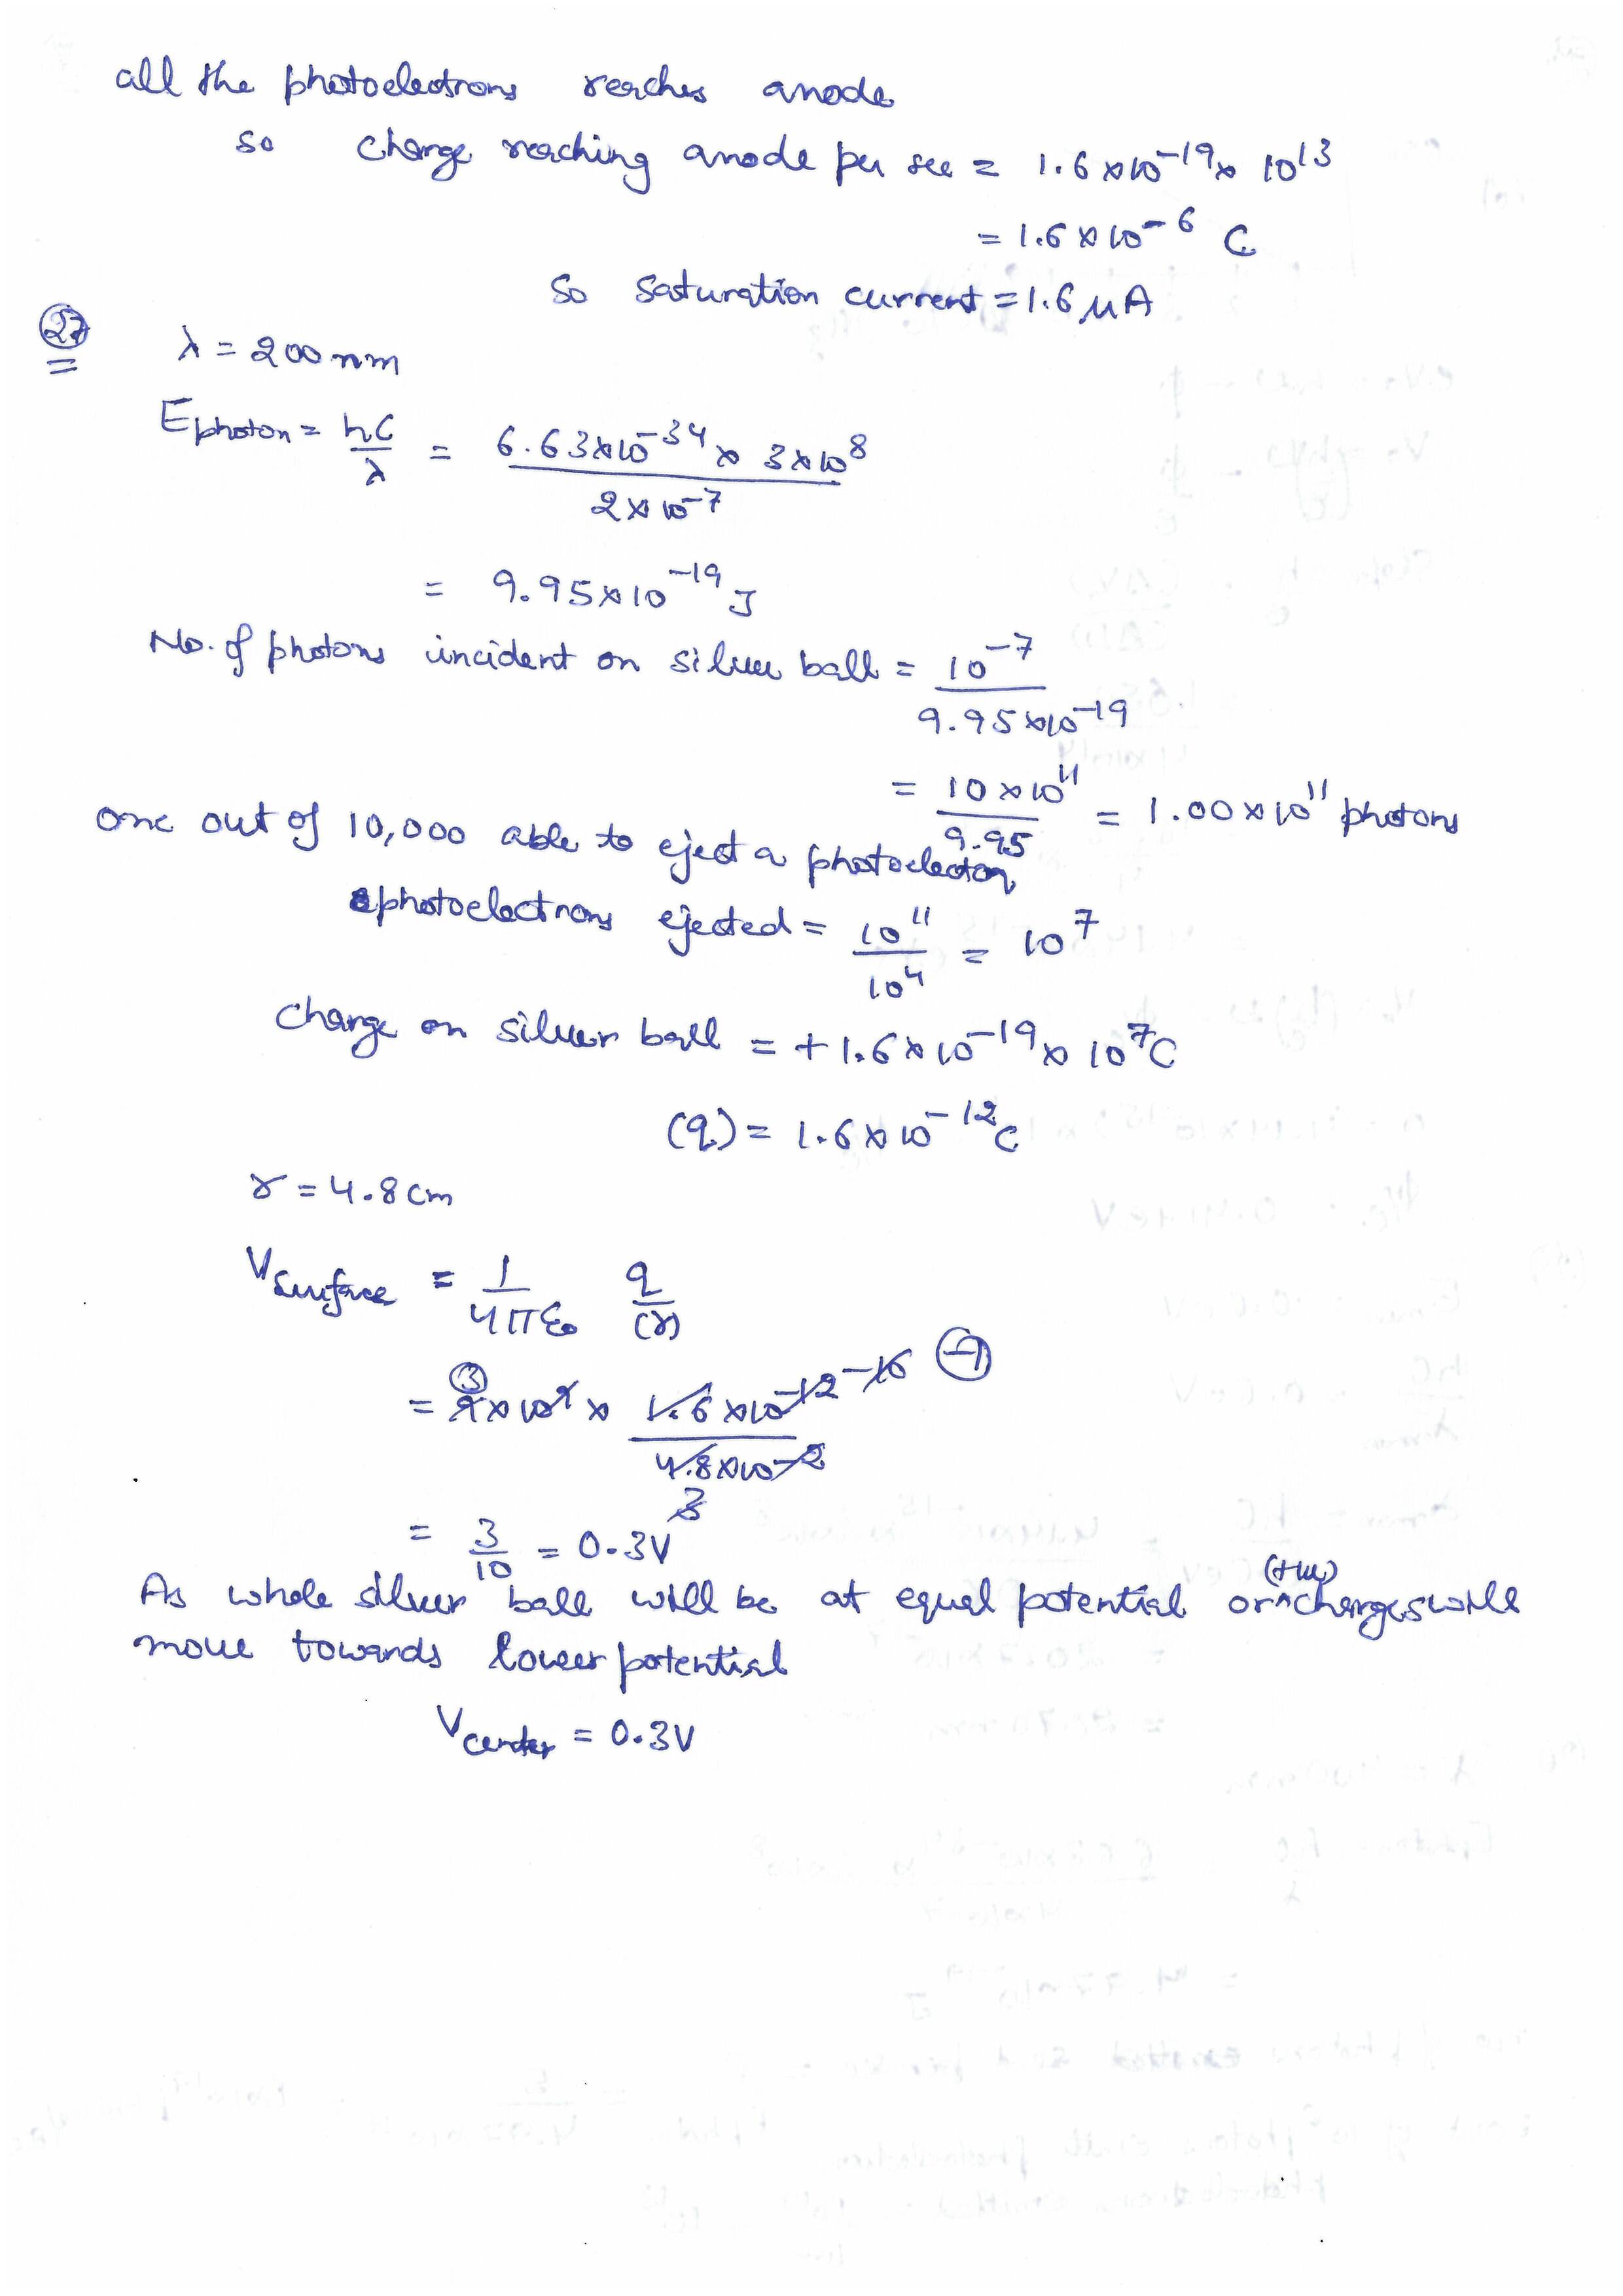 all the photoelectrons reaches anode
so charge reaching anode per sec = 1.6×10^-19 × 10^13
= 1.6×10^-6 C
So saturation current = 1.6 μA
27
λ = 200 nm
Ephoton = hC/λ = (6.63×10^-34 × 3×10^8)/(2×10^-7)
= 9.95×10^-19 J
No. of photons incident on silver ball = 10^-7/(9.95×10^-19)
= (10×10^11)/9.95 = 1.00×10^11 photons
one out of 10,000 able to eject a photoelectron
photoelectrons ejected = 10^11/10^4 = 10^7
Charge on silver ball = +1.6×10^-19 × 10^7 C
(q) = 1.6×10^-12 C
r = 4.8 cm
Vsurface = 1/(4πε₀) q/(r)
= 9×10^9 × (1.6×10^-12)/(4.8×10^-2)
= 3/10 = 0.3V
As whole silver ball will be at equal potential or (+ve) charges will
move towards lower potential
Vcenter = 0.3V